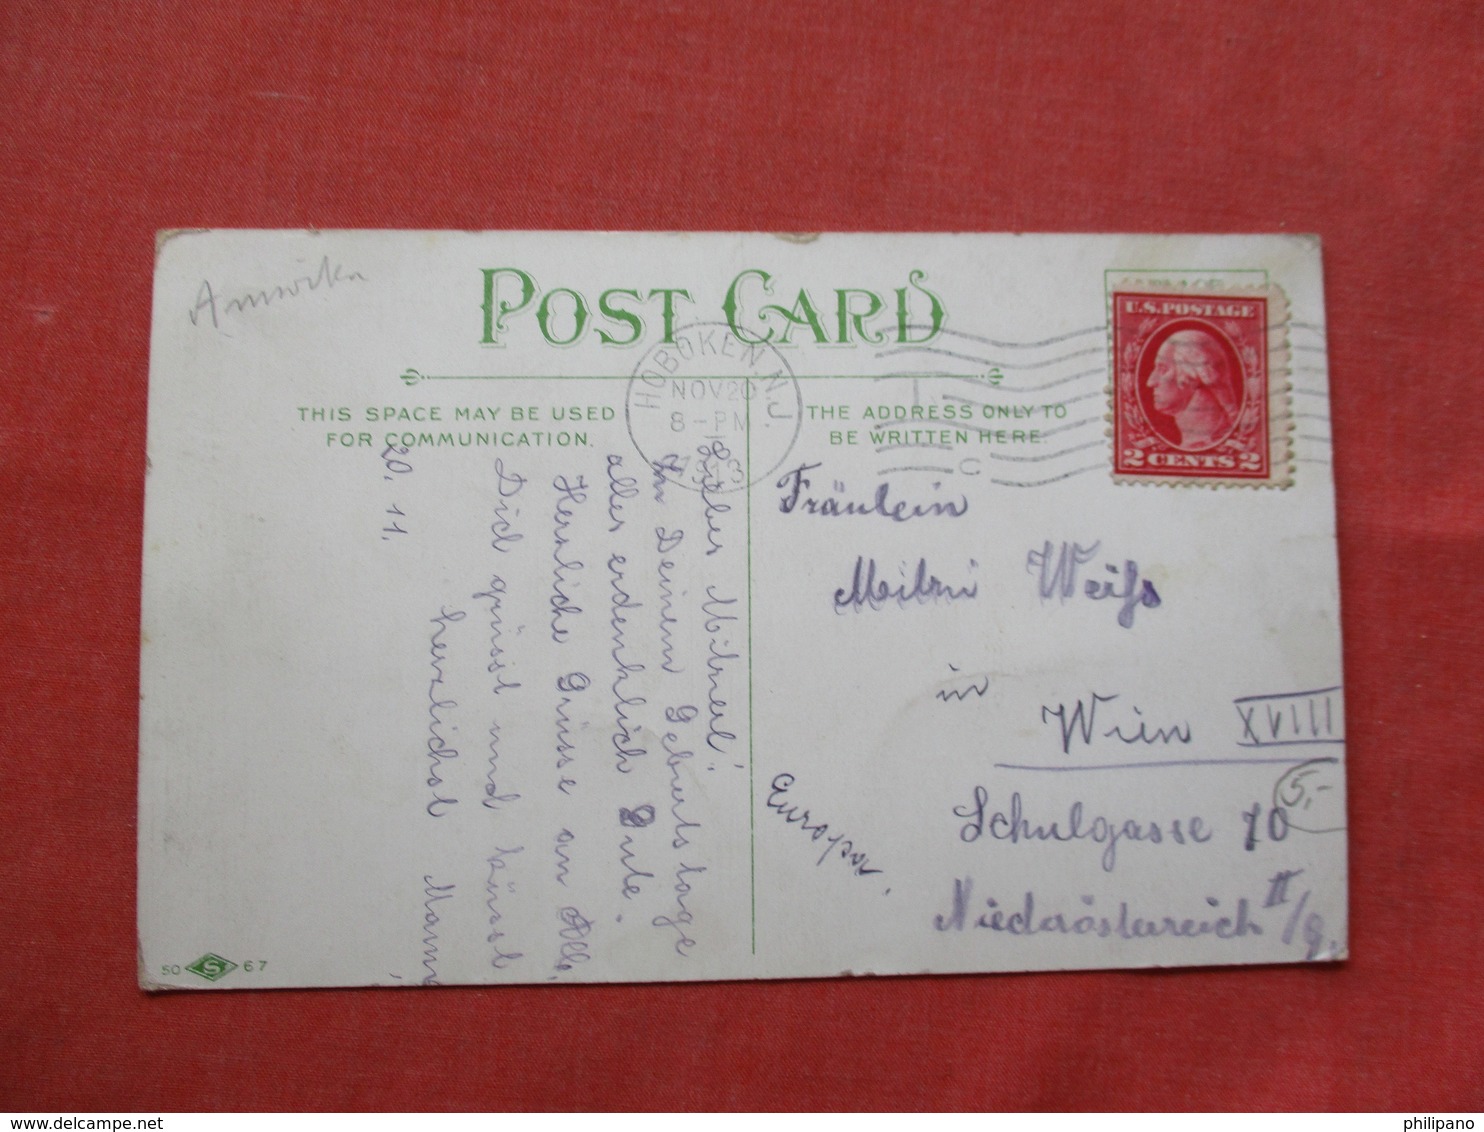 Amerika
POST CARD
THIS SPACE MAY BE USED
FOR COMMUNICATION.
THE ADDRESS ONLY TO
BE WRITTEN HERE.
HOBOKEN, N.J.
NOV 20
8-PM
1913
U.S. POSTAGE
2 CENTS 2
20. 11.
Liebes Mitzerl!
Zu Deinem Geburtstage
alles erdenklich Gute.
Herzliche Grüsse an Alle,
Dich grüsst und küsst
herzlichst Mama
Fräulein
Mitzi Weiß
in
Wien XVIII
Schulgasse 70
II/9.
Niederösterreich
Europa.
5,-
50 S 67
philipano
www.delcampe.net